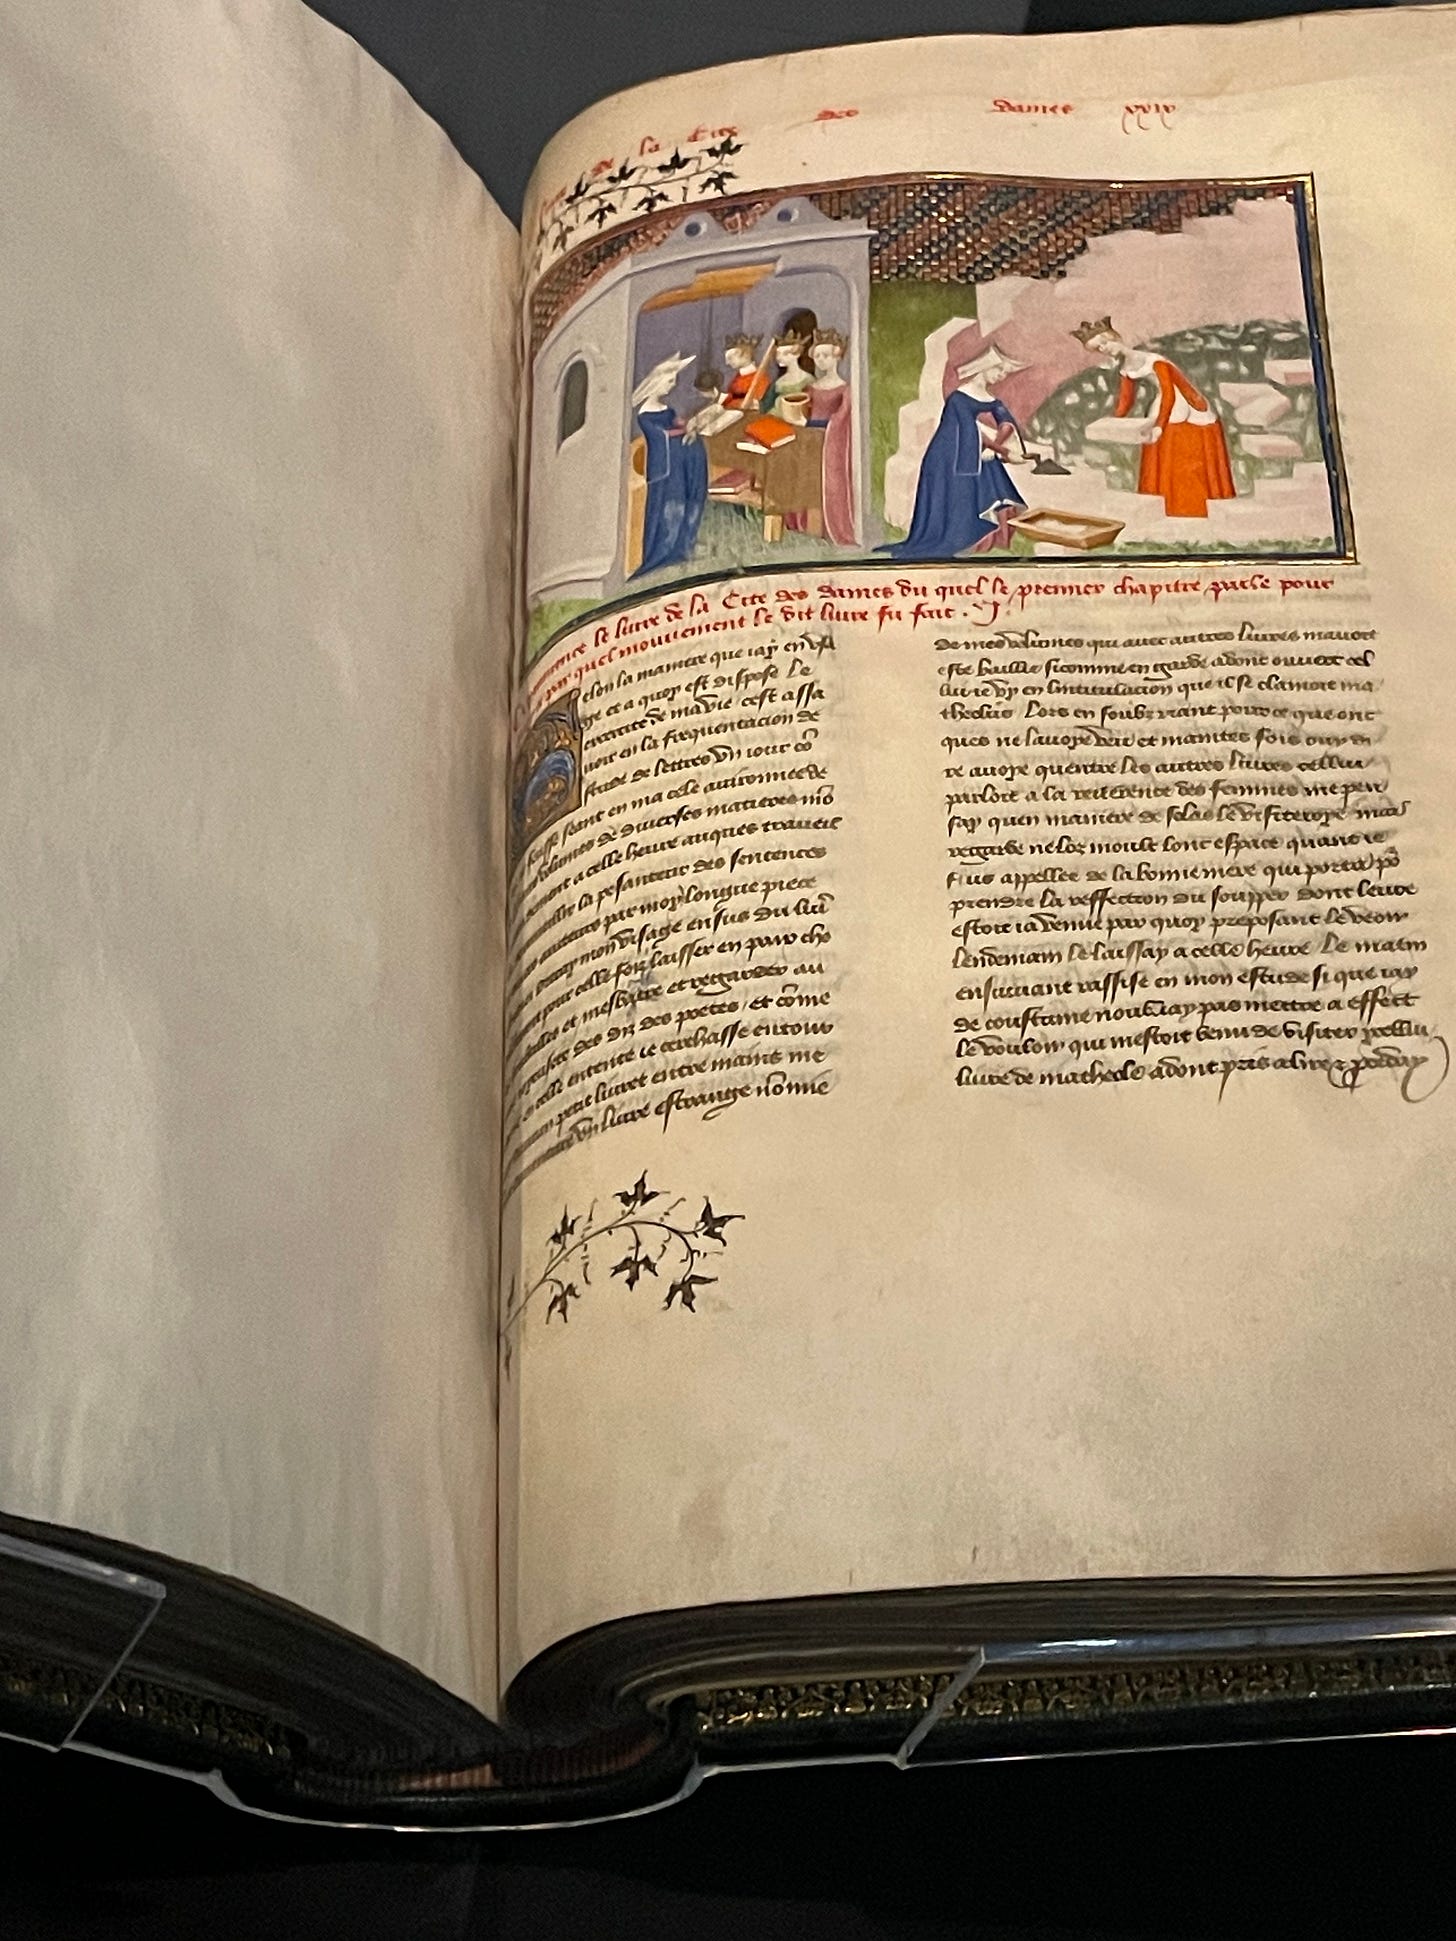 de la Cite des Dames xxix
Cy commence le livre de la Cite des dames du quel le premier chapitre parle pour
quoy et par quel mouvement le dit livre fu fait . I.
Selon la maniere que iay en usa
ge et a quoy est dispose le
exercite de ma vie cest assa
voir en la frequentacion de
estude de lettres un iour co
seant en ma cele avironnee de
volumes de diverses matieres mo
a celle heure auques traveil
la pesanteur des sentences
par moy longue piece
mon visage ensus du liv
pour celle foiz laisser en paix cho
et mesbatre et regarder au
des diz des poetes et come
en celle entente ie cerchasse entour
petit livret entre mains me
un livre estrange nomme
de mes volumes qui avec autres livres mavoit
este baillie si comme en garde adont ouvert cel
lui ie vy en lintitulacion que il se clamoit ma
theolus Lors en soubzriant pour ce que onc
ques ne lavoye veu et maintes fois ouy di
re avoye quentre les autres livres cellui
parloit a la reverence des femmes me pen
say quen maniere de solas le visiteroye mais
regarde ne loz moult lonc espace quant ie
fus appellee de la bonne mere qui porta po
prendre la reffection du soupper dont leure
estoit ia venue par quoy proposant le veoir
lendemain le laissay a celle heure Le matin
ensuivant rassise en mon estude si que iay
de coustume noubliay pas mettre a effect
le vouloir qui mestoit venu de visiter ycellui
livre de matheole adont pris a lire et proceday